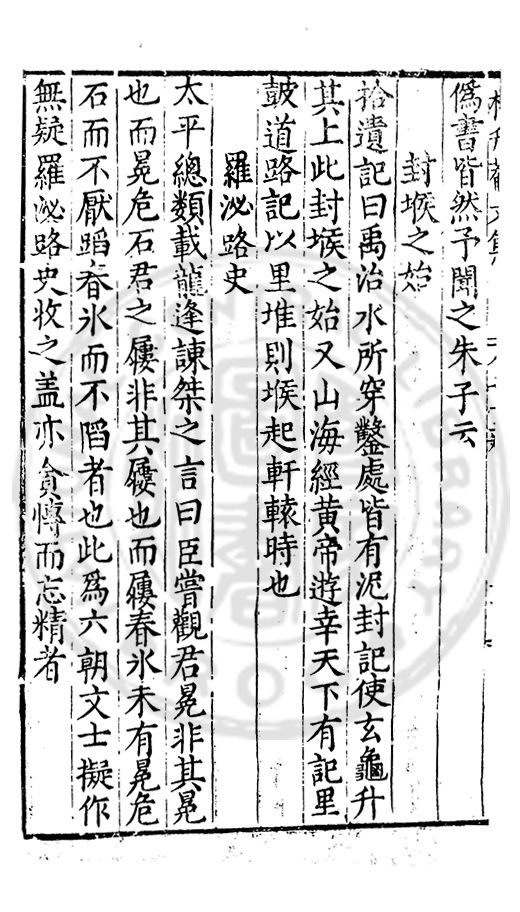 偽書皆然予聞之朱子云
封堠之始
拾遺記曰禹治水所穿鑿處皆有泥封記使玄龜升
其上此封堠之始又山海經黃帝遊幸天下有記里
鼓道路記以里堆則堠起軒轅時也
羅泌路史
太平總類載龍逢諫桀之言曰臣嘗觀君冕非其冕
也而冕危石君之屨非其屨也而屨春氷未有冕危
石而不厭蹈春氷而不陷者也此爲六朝文士擬作
無疑羅泌路史收之盖亦貪愽而忘精者